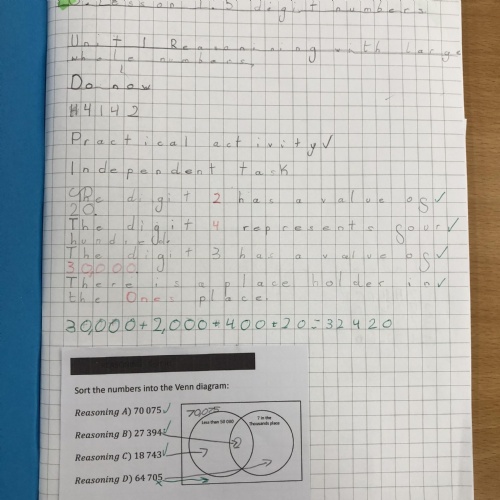 Lesson 1: 5 digit numbers
Unit 1 Reasoning with large
whole numbers,
Do now
4142
Practical activity ✓
Independent task
The digit 2 has a value of ✓
20.
The digit 4 represents four ✓
hundred.
The digit 3 has a value of ✓
30,000.
There is a place holder in ✓
the Ones place.
30,000+2,000+400+20=32420
Sort the numbers into the Venn diagram:
Reasoning A) 70 075 ✓
Reasoning B) 27 394 ✓
Reasoning C) 18 743 ✓
Reasoning D) 64 705
70,075
Less than 50 000
7 in the
Thousands place